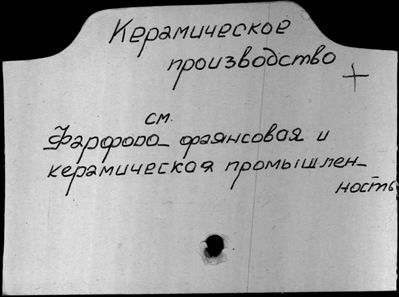 Керамическое
производство
+
см.
Фарфоро-фаянсовая и
керамическая промышлен-
ность